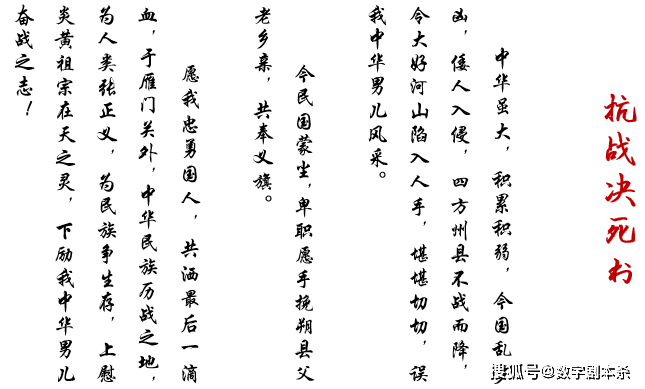 抗战决死书
中华虽大，积累积弱，今国乱
凶，倭人入侵，四方州县不战而降，
今大好河山陷入人手，堪堪切切，误
我中华男儿风采。
今民国蒙尘，卑职愿手挽朔县父
老乡亲，共奉义旗。
愿我忠勇国人，共洒最后一滴
血，于雁门关外，中华民族历战之地，
为人类张正义，为民族争生存，上慰
炎黄祖宗在天之灵，下励我中华男儿
奋战之志！
搜狐号@数字剧本杀